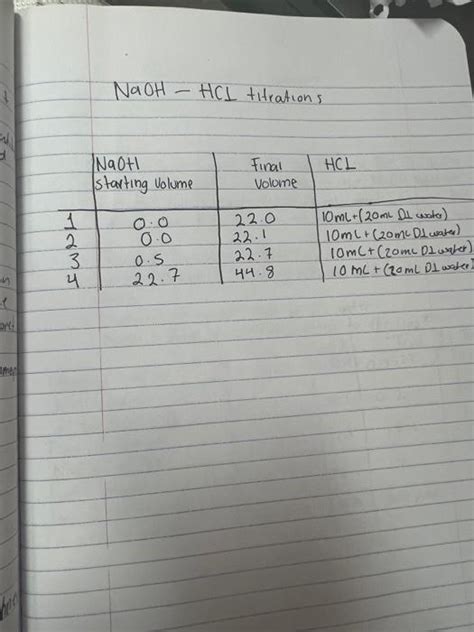 NaOH – HCl titrations
NaOH Final HCL
Starting Volume Volume
1 0.0 22.0 10mL+(20mL DI water)
2 0.0 22.1 10mL+(20mL DI water)
3 0.5 22.7 10mL+(20mL DI water)
4 22.7 44.8 10mL+(20mL DI water)